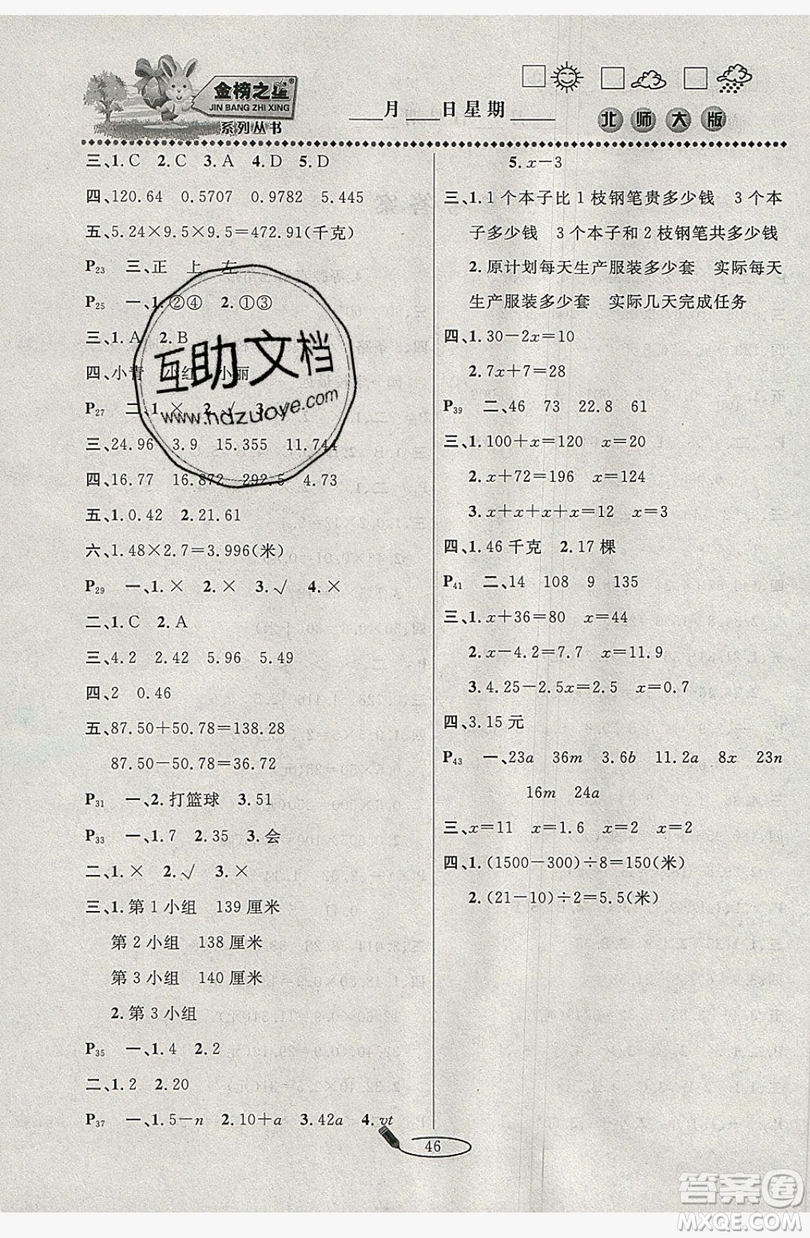 金榜之星®
JIN BANG ZHI XING
系列丛书
月 日 星期
北师大版
三、1. C 2. C 3. A 4. D 5. D
四、120.64 0.5707 0.9782 5.445
五、5.24×9.5×9.5=472.91(千克)
P23 三、正 上 左
P25 一、1.②④ 2.①③
三、1. A 2. B
四、小青 小红 小丽
P27 二、1.× 2.√ 3.
三、24.96 3.9 15.355 11.744
四、16.77 16.872 292.5 4.73
五、1. 0.42 2. 21.61
六、1.48×2.7=3.996(米)
P29 一、1.× 2.× 3.√ 4.×
二、1. C 2. A
三、4.2 2.42 5.95 4.59
四、2 0.46
五、87.50+50.78=138.28
87.50-50.78=36.72
P31 一、2. 打篮球 3. 51
P33 一、1. 7 2. 35 3. 会
二、1.× 2.√ 3.×
三、1. 第1小组 139厘米
第2小组 138厘米
第3小组 140厘米
2. 第3小组
P35 一、1. 4 2. 2
二、1. 2 2. 20
P37 一、1. 5-n 2. 10+a 3. 42a 4. vt
5. x-3
三、1. 1个本子比1枝钢笔贵多少钱 3个本
子多少钱 3个本子和2枝钢笔共多少钱
2. 原计划每天生产服装多少套 实际每天
生产服装多少套 实际几天完成任务
四、1. 30-2x=10
2. 7x+7=91
P39 二、46 73 22.8 61
三、1. 100+x=120 x=20
2. x+72=196 x=124
3. x+x+x+x=12 x=3
四、1. 46千克 2. 17棵
P41 二、14 108 9 135
三、1. x+36=80 x=44
2. x-4.2=7.7 x=11.9
3. 4.25-2.5=x x=1.75
四、3.15元
P43 一、23a 36m 3.6b 11.2a 8x 23n
16m 24a
三、x=11 x=2 x=5
四、1. (1500-300)÷8=150(米)
2. (21-10)÷2=5.5(米)
46
互助文档
www.hdzuoye.com
答案圈
MXQE.COM